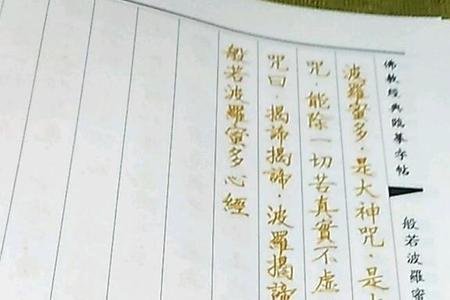 佛教經典臨摹字帖
般若波羅蜜
波羅蜜多·是大神咒·是
咒·能除一切苦真實不虛
咒曰·揭諦揭諦·波羅揭諦
般若波羅蜜多心經